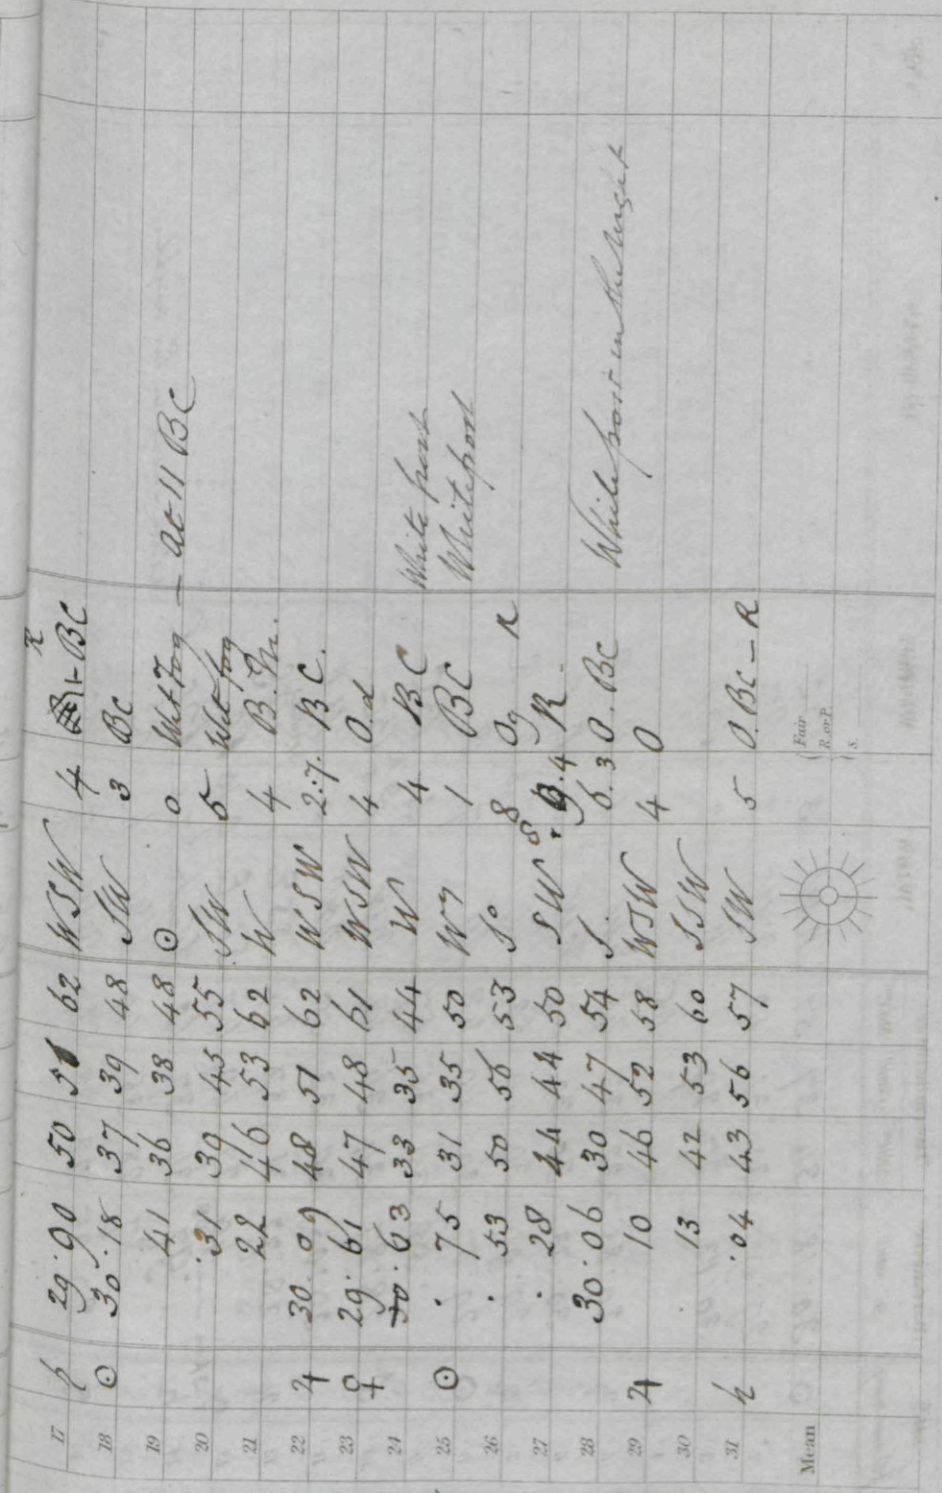 17 ♄ 29.90 50 51 62 WSW 4 R - BC
18 ☉ 30.18 37 39 48 SW 3 BC
19 41 36 38 48 ☉ 0 Wet Fog — at 11 BC
20 .31 39 45 55 SW 5 Wet fog
21 22 46 53 62 W 4 B. M.
22 ♃ 30.09 48 51 62 WSW 2.7. BC.
23 ♀ 29.61 47 48 61 WSW 4 O.d
24 30.63 33 35 44 W 4 BC White frost
25 ☉ . 75 31 35 50 W 1 BC White frost
26 . 53 50 56 53 S 8 Og R
27 . 28 44 44 50 SW 8.9.4 R.
28 30.06 30 47 54 S. 6.3 O. BC White frost in the night
29 ♃ 10 46 52 58 WSW 4 O
30 . 13 42 53 60 SSW
31 ♄ .04 43 56 57 SW 5 O. BC — R
Mean
Fair
R. or P.
S.